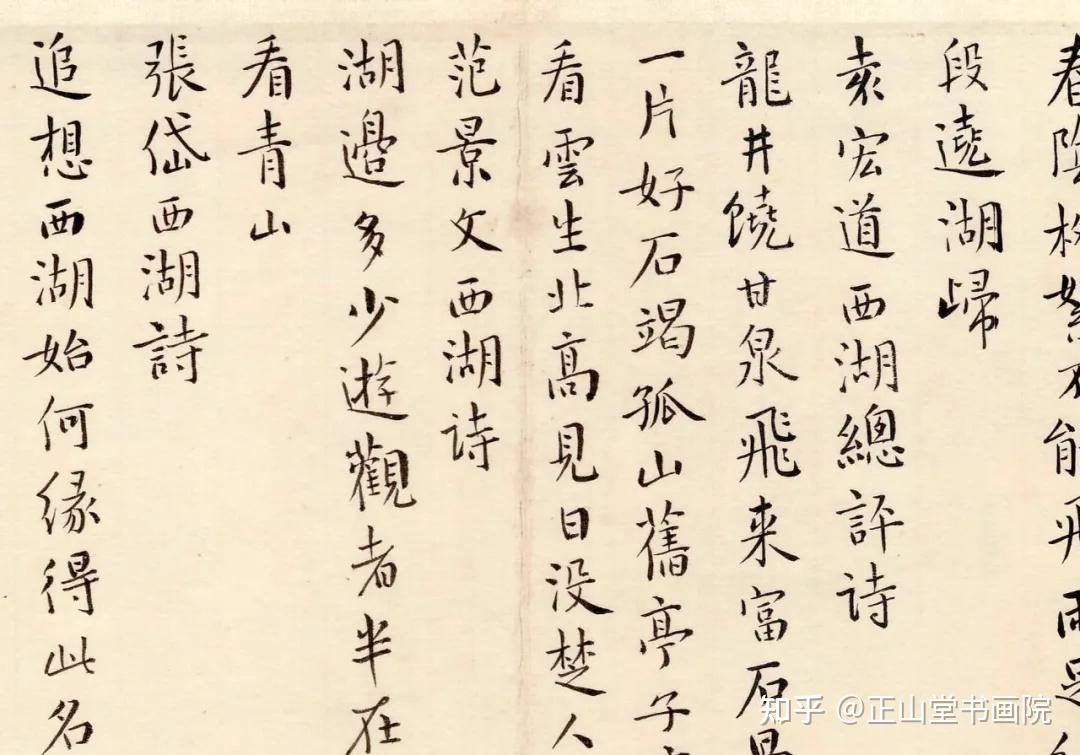 春陰
段遶湖歸
袁宏道西湖總評詩
龍井饒甘泉飛来富石
一片好石竭孤山舊亭子
看雲生北高見日没楚人
范景文西湖诗
湖邉多少遊觀者半在
看青山
張岱西湖詩
追想西湖始何緣得此名
知乎 @正山堂书画院